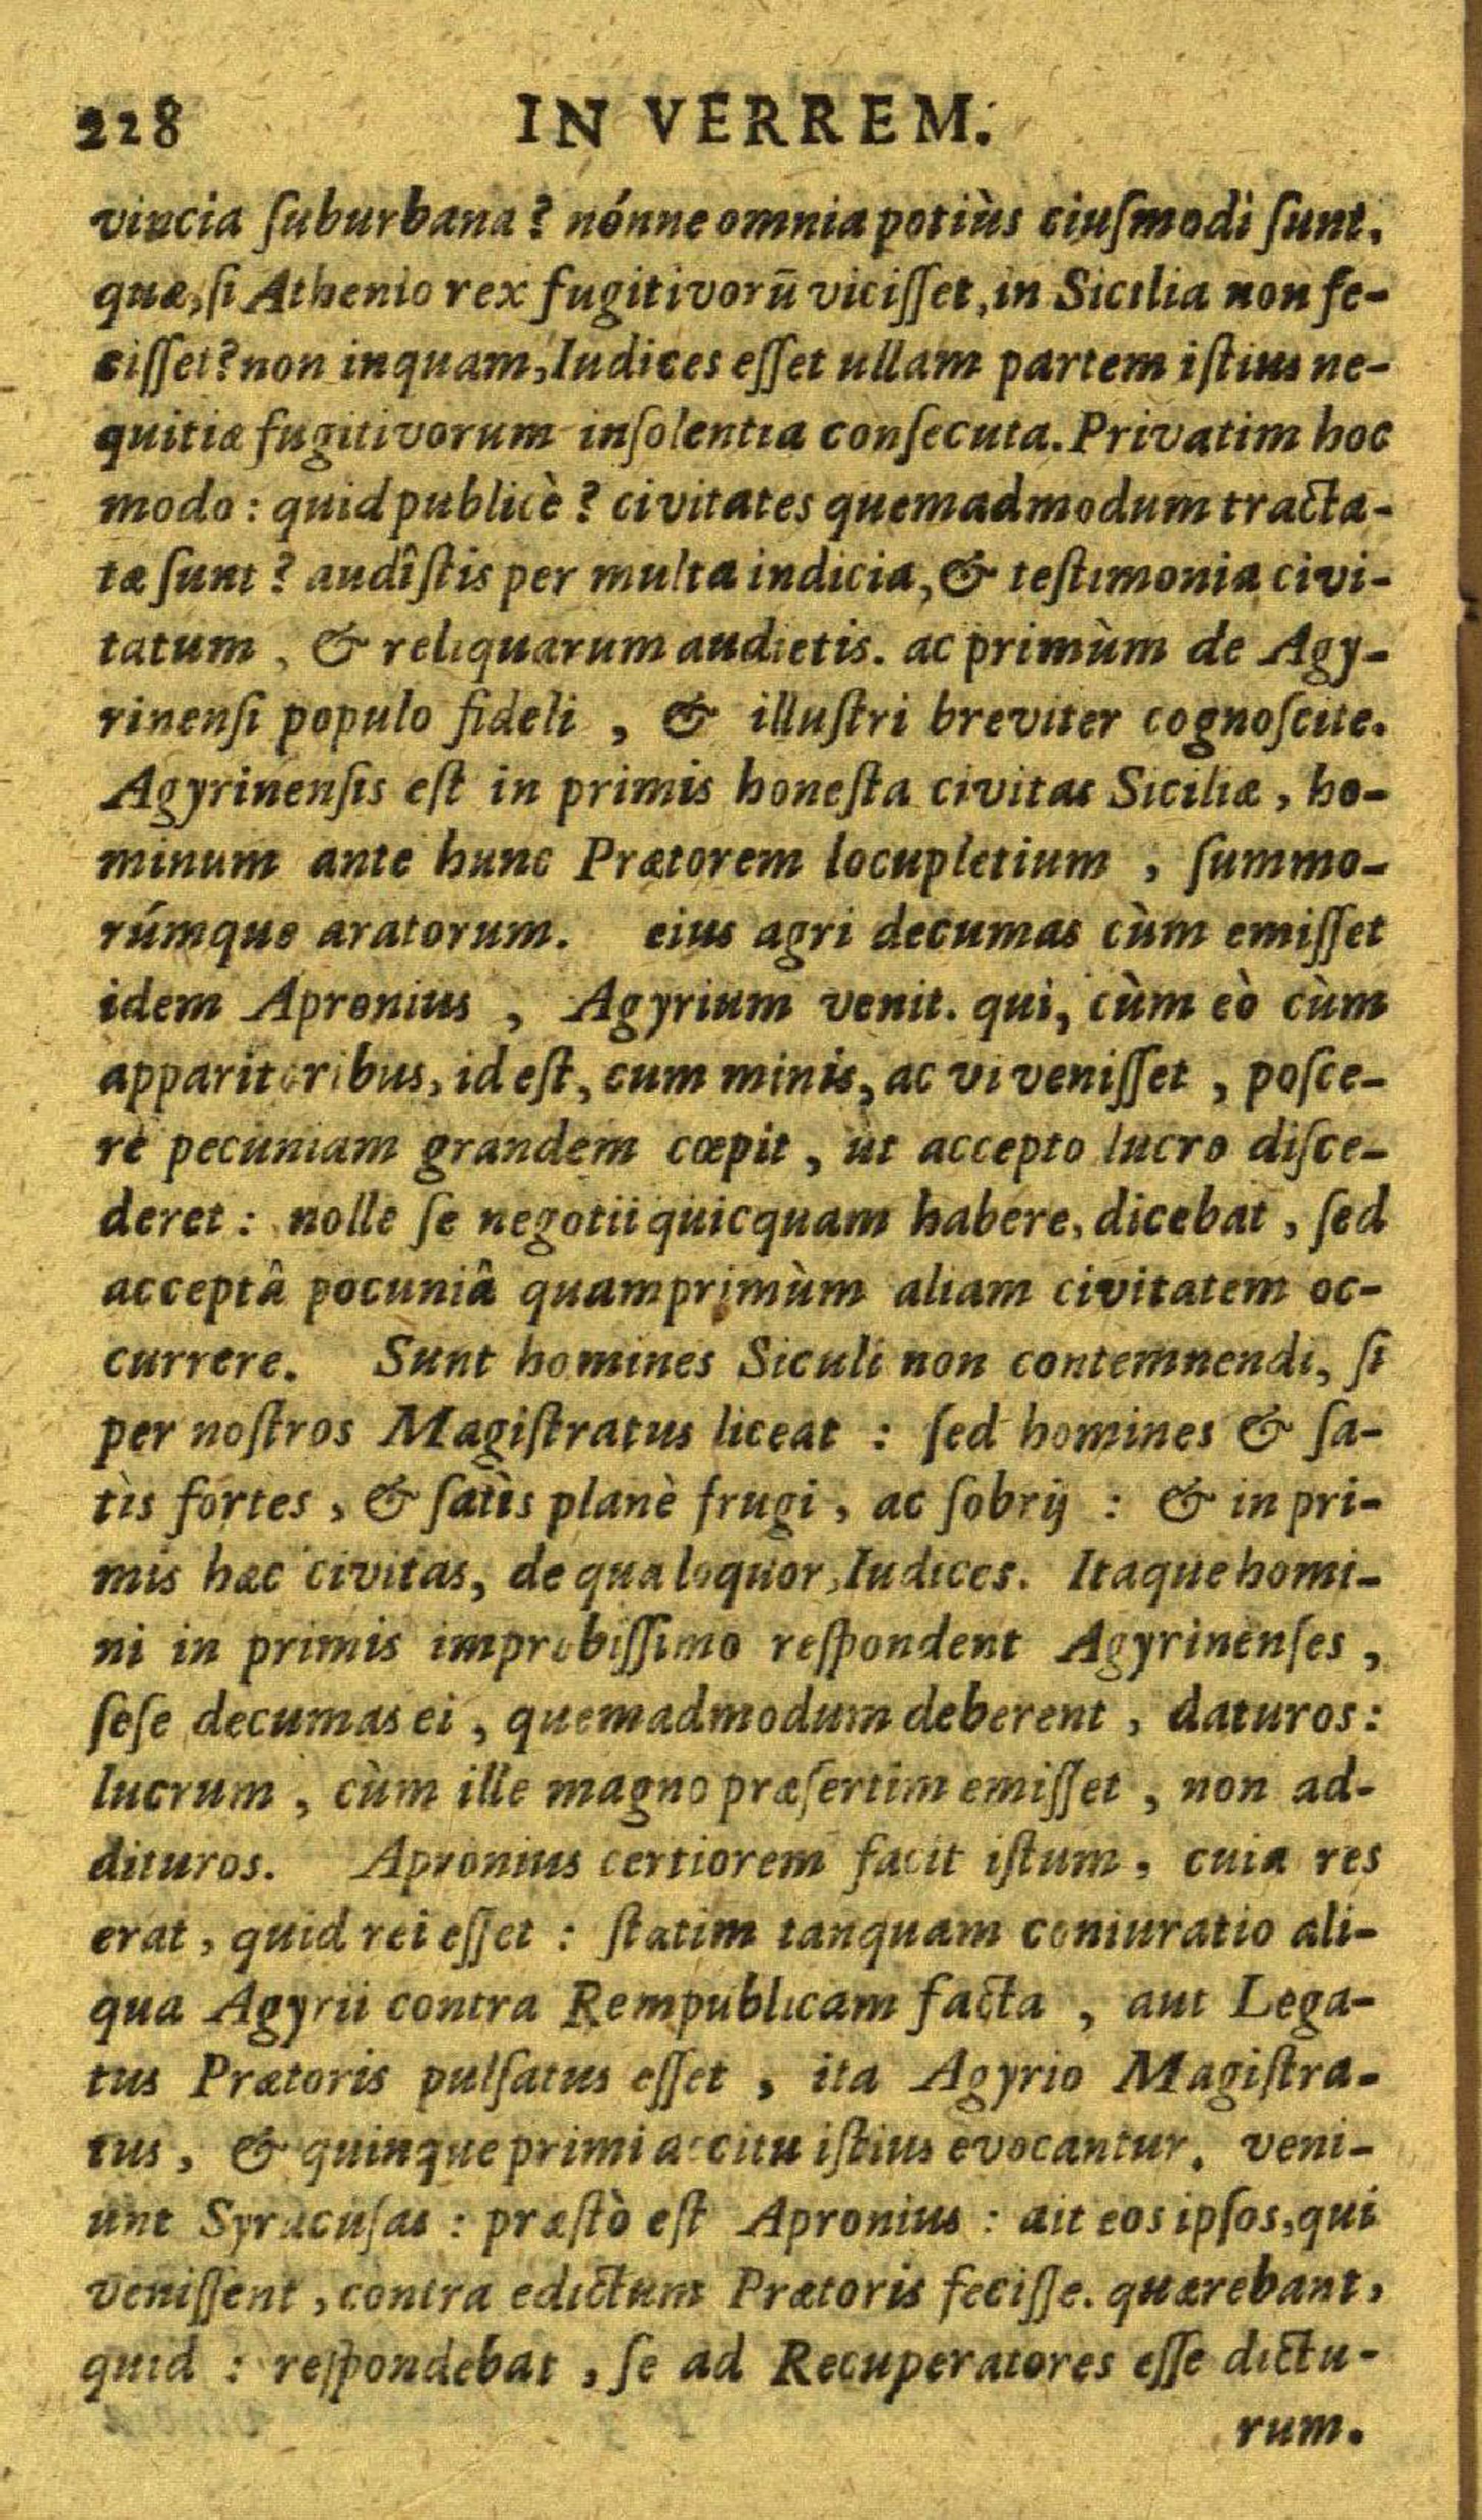 228 IN VERREM.
vincia ſuburbana? nónne omnia potiùs eiuſmodi ſunt,
quæ, ſi Athenio rex fugitivorū viciſſet, in Sicilia non fe-
ciſſet? non inquam, Iudices eſſet ullam partem iſtius ne-
quitiæ fugitivorum inſolentia conſecuta. Privatim hoc
modo: quid publicè? civitates quemadmodum tracta-
tæ ſunt? audîſtis per multa indicia, & teſtimonia civi-
tatum, & reliquarum audietis. ac primùm de Agy-
rinenſi populo fideli, & illuſtri breviter cognoſcite.
Agyrinenſis eſt in primis honeſta civitas Siciliæ, ho-
minum ante hunc Prætorem locupletium, ſummo-
rúmque aratorum. eius agri decumas cùm emiſſet
idem Apronius, Agyrium venit. qui, cùm eò cùm
apparitoribus, id eſt, cum minis, ac vi veniſſet, poſce-
re pecuniam grandem cœpit, ut accepto lucro diſce-
deret: nolle ſe negotii quicquam habere, dicebat, ſed
acceptâ pocuniâ quamprimùm aliam civitatem oc-
currere. Sunt homines Siculi non contemnendi, ſi
per noſtros Magiſtratus liceat: ſed homines & ſa-
tìs fortes, & ſatìs planè frugi, ac ſobrij: & in pri-
mis hæc civitas, de qua loquor, Iudices. Itaque homi-
ni in primis improbiſſimo reſpondent Agyrinenſes,
ſeſe decumas ei, quemadmodum deberent, daturos:
lucrum, cùm ille magno præſertim emiſſet, non ad-
dituros. Apronius certiorem facit iſtum, cuia res
erat, quid rei eſſet: ſtatim tanquam coniuratio ali-
qua Agyrii contra Rempublicam facta, aut Lega-
tus Prætoris pulſatus eſſet, ita Agyrio Magiſtra-
tus, & quinque primi accitu iſtius evocantur. veni-
unt Syracuſas: præſtò eſt Apronius: ait eos ipſos, qui
veniſſent, contra edictum Prætoris feciſſe. quærebant,
quid: reſpondebat, ſe ad Recuperatores eſſe dictu-
rum.